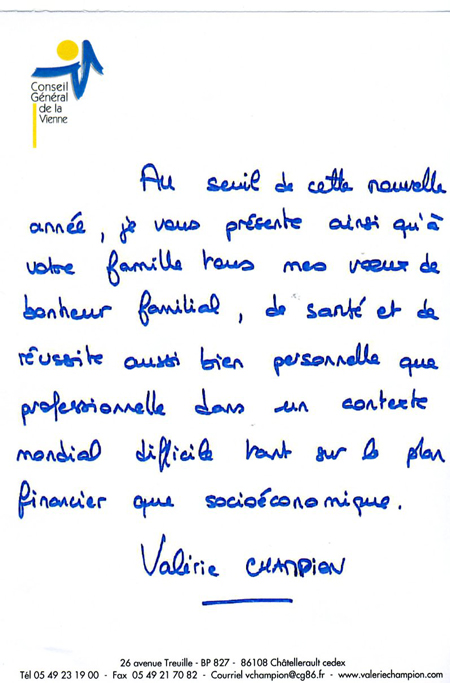 Conseil
Général
de la
Vienne
Au seuil de cette nouvelle
année, je vous présente ainsi qu'à
votre famille tous mes vœux de
bonheur familial, de santé et de
réussite aussi bien personnelle que
professionnelle dans un contexte
mondial difficile tant sur le plan
financier que socioéconomique.
Valérie CHAMPION
26 avenue Treuille - BP 827 - 86108 Châtellerault cedex
Tél 05 49 23 19 00 - Fax 05 49 21 70 82 - Courriel vchampion@cg86.fr - www.valeriechampion.com